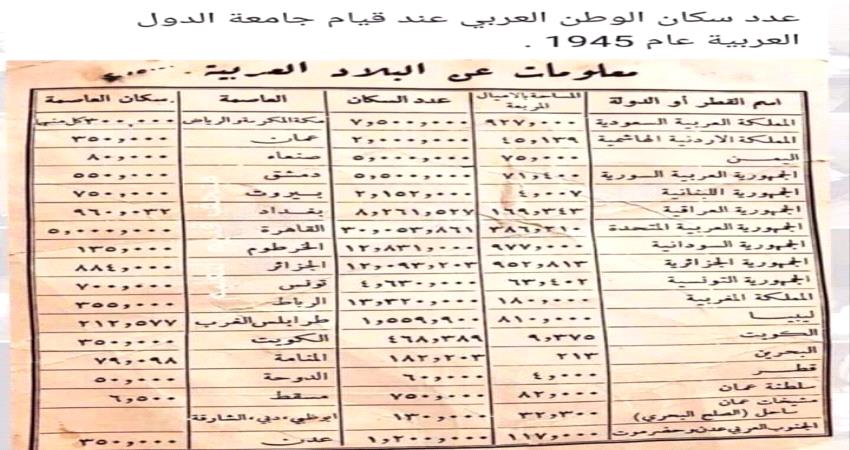 عدد سكان الوطن العربي عند قيام جامعة الدول
العربية عام 1945 .
معلومات عن البلاد العربية
اسم القطر أو الدولة المساحة بالأميال المربعة عدد السكان العاصمة سكان العاصمة
المملكة العربية السعودية ٩٢٧,٠٠٠ ٧,٥٠٠,٠٠٠ مكة المكرمة والرياض ٣٠٠,٠٠٠ كل منهما
المملكة الاردنية الهاشمية ٤٥,١٣٩ ٢,٠٠٠,٠٠٠ عمان ٣٥٠,٠٠٠
اليمن ٧٥,٠٠٠ ٥,٠٠٠,٠٠٠ صنعاء ٨٠,٠٠٠
الجمهورية العربية السورية ٧١,٤٠٠ ٥,٠٠٠,٠٠٠ دمشق ٥٥٠,٠٠٠
الجمهورية اللبنانية ٤,٠٠٧ ٢,١٥٢,٠٠٠ بيروت ٧٥٠,٠٠٠
الجمهورية العراقية ١٦٩,٣٤٣ ٨,٢٦١,٥٢٧ بغداد ٩٦٠,٠٣٢
الجمهورية العربية المتحدة ٣٨٦,٢١٠ ٣٠,٠٥٣,٨٦١ القاهرة ٥,٠٠٠,٠٠٠
الجمهورية السودانية ٩٧٧,٠٠٠ ١٢,٨٣١,٠٠٠ الخرطوم ١٣٥,٠٠٠
الجمهورية الجزائرية ٩٥٢,٨١٣ ١٢,٠٩٣,٢٠٣ الجزائر ٨٨٤,٠٠٠
الجمهورية التونسية ٦٣,٤٠٢ ٤,٦٣٠,٠٠٠ تونس ٧٠٠,٠٠٠
المملكة المغربية ١٨٠,٠٠٠ ١٣,٣٢٠,٠٠٠ الرباط ٣٥٥,٠٠٠
ليبيا ٨١٠,٠٠٠ ١,٥٥٩,٩٠٠ طرابلس الغرب ٢١٢,٥٧٧
الكويت ٩,٣٧٥ ٤٦٨,٣٨٩ الكويت ٣٥٠,٠٠٠
البحرين ٢١٣ ١٨٢,٢٠٣ المنامة ٧٩,٠٩٨
قطر ٤,٠٠٠ ٦٠,٠٠٠ الدوحة ٥٠,٠٠٠
سلطنة عمان ٨٢,٠٠٠ ٧٥٠,٠٠٠ مسقط ٦,٥٠٠
مشيخات عمان
ساحل (الصلح البحري) ٣٢,٣٠٠ ١٣٠,٠٠٠ ابوظبي، دبي، الشارقة
الجنوب العربي عدن وحضرموت ١١٧,٠٠٠ ١,٢٠٠,٠٠٠ عدن ٣٥٠,٠٠٠